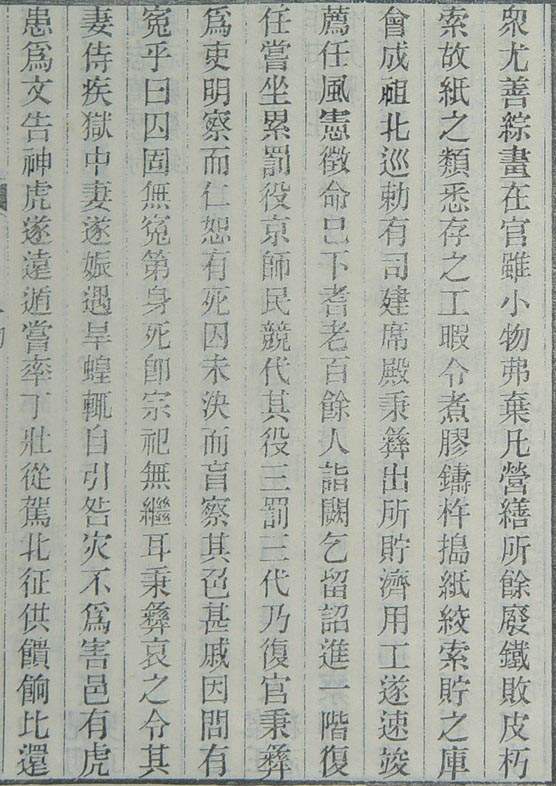 衆尤善綜畫在官雖小物弗棄凡營繕所餘廢鐵敗皮朽
索故紙之類悉存之工暇令煮膠鑄杵搗紙絞索貯之庫
會成祖北巡勅有司建席殿秉彝出所貯濟用工遂速竣
薦任風憲徵命已下耆老百餘人詣闕乞留詔進一階復
任嘗坐累罰役京師民競代其役三罰三代乃復官秉彝
為吏明察而仁恕有死囚未決而盲察其色甚戚因問有
冤乎曰囚固無冤第身死卽宗祀無繼耳秉彝哀之令其
妻侍疾獄中妻遂娠遇旱蝗輒自引咎灾不為害邑有虎
患為文告神虎遂遠遁嘗率丁壯從駕北征供饋餉比還